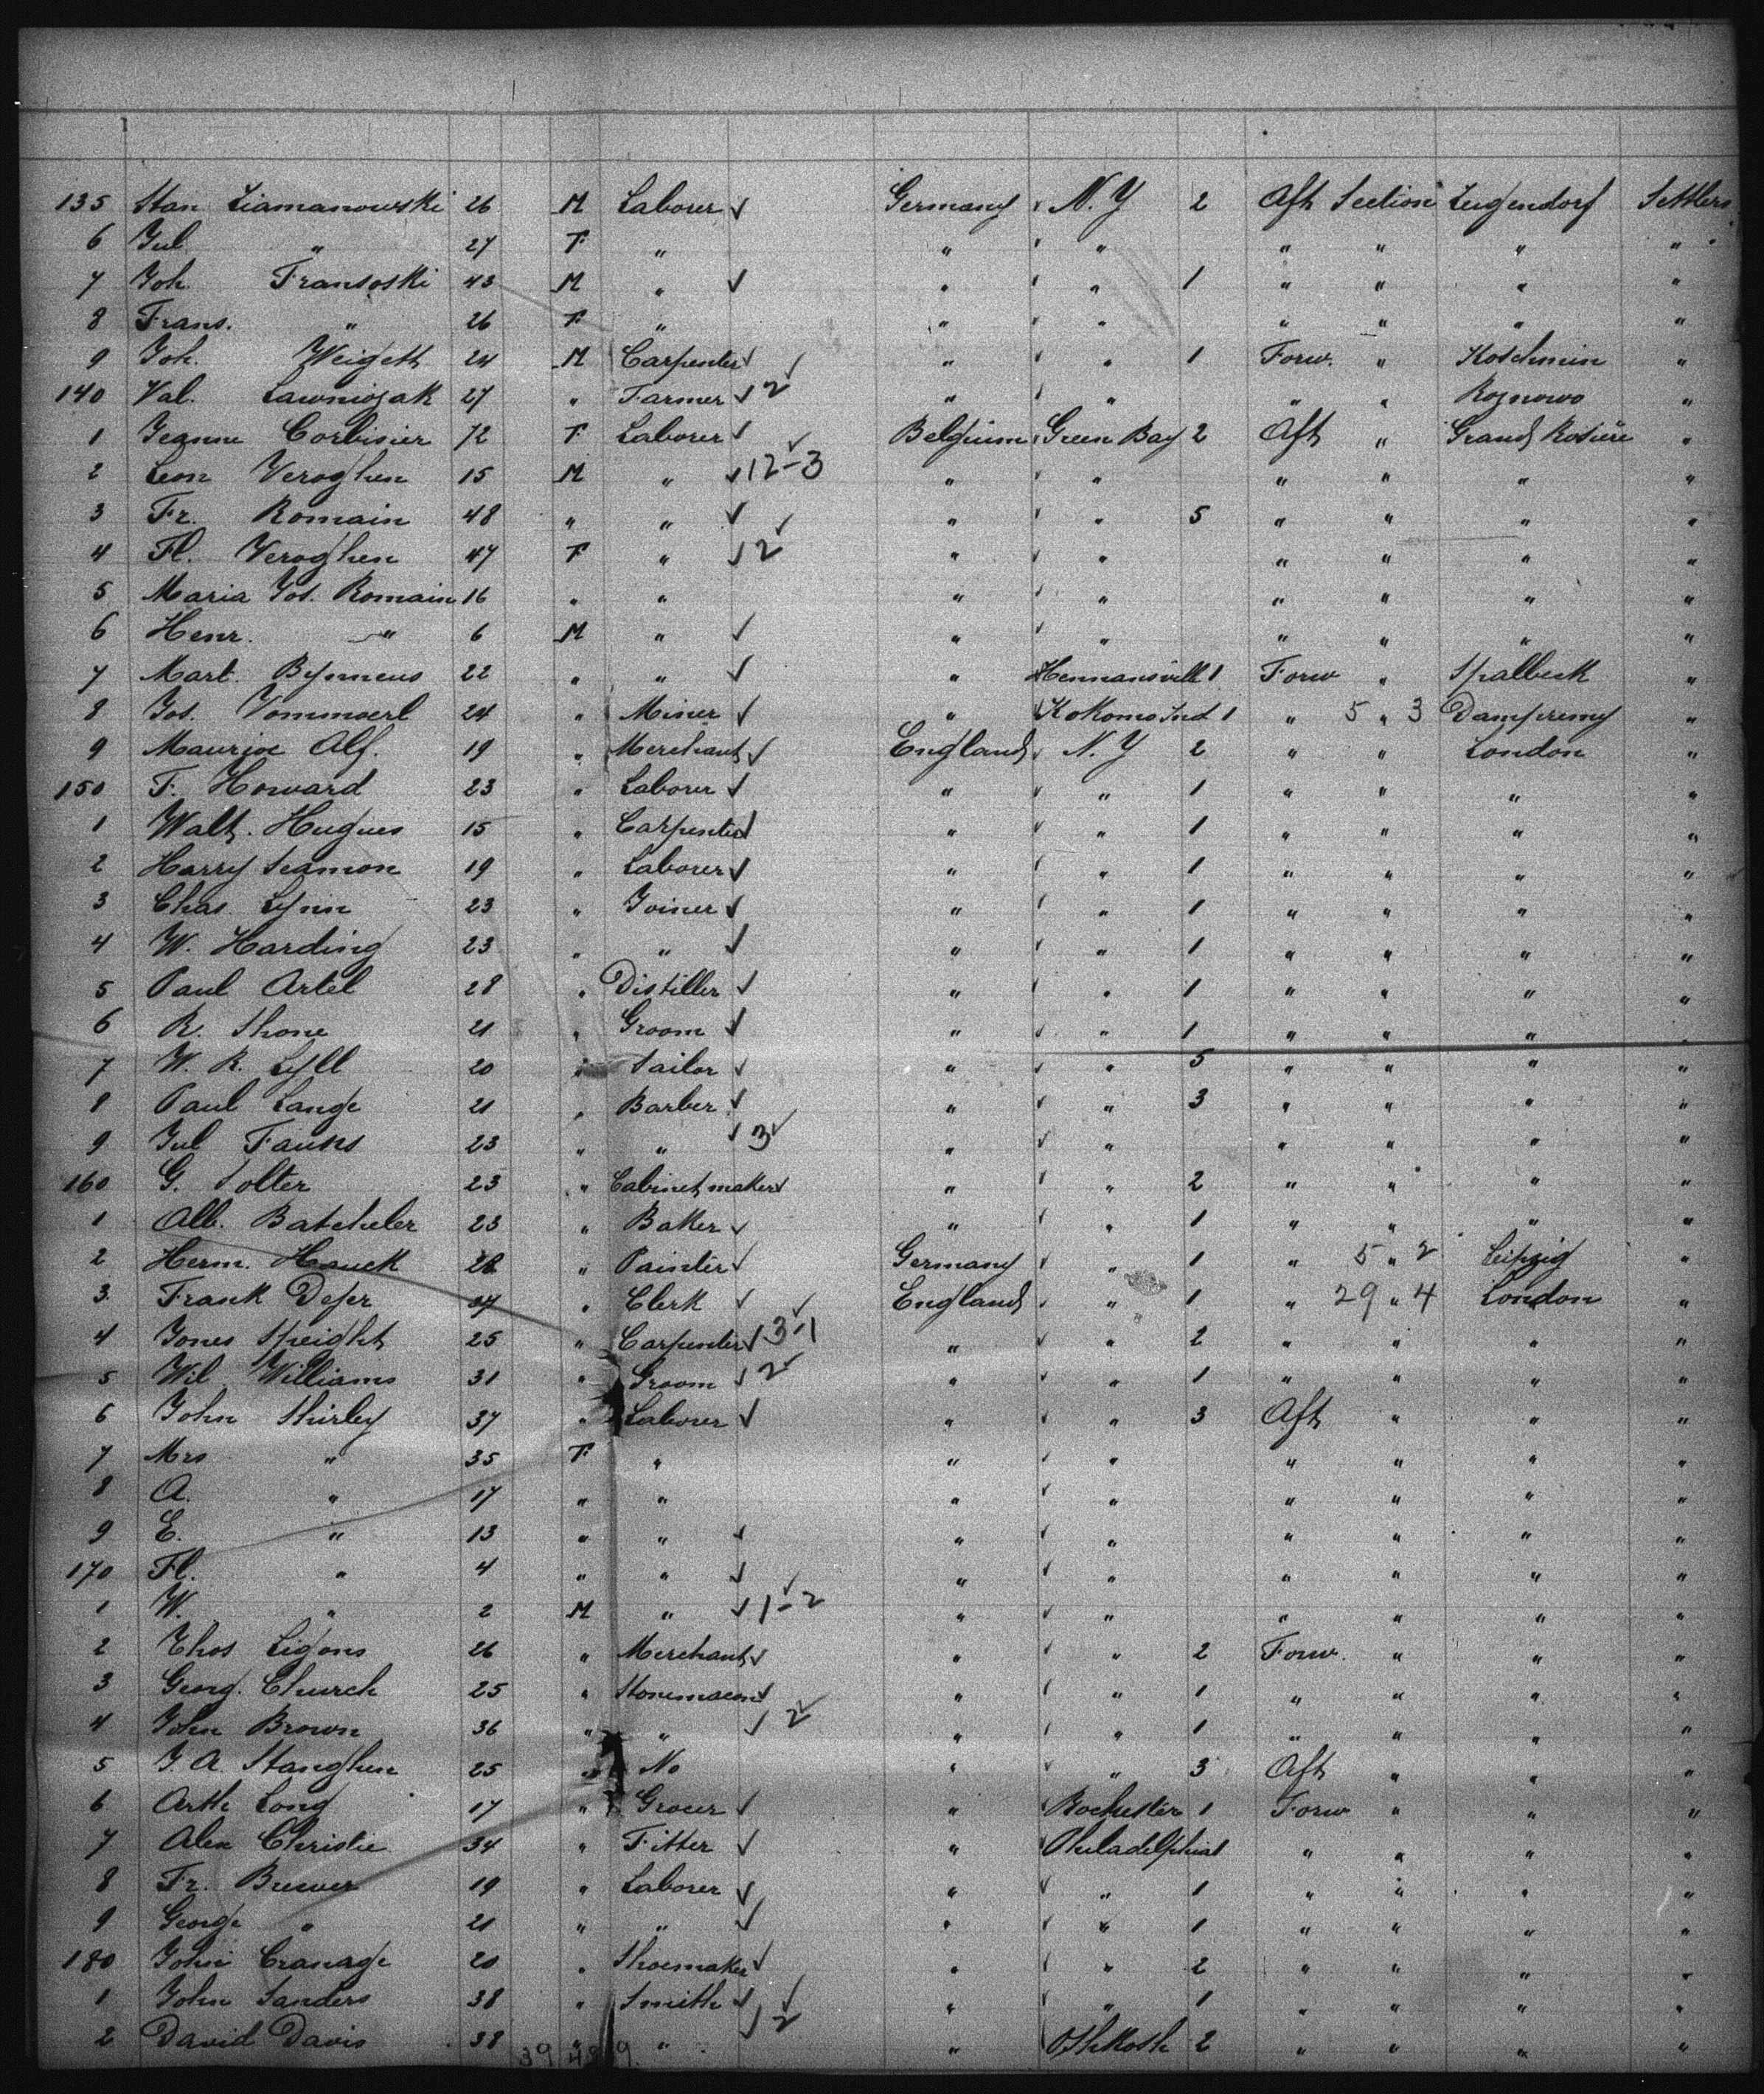 135 Stan Ziamanowski 26 M Laborer ✓ Germany ✓ N.Y 2 Aft Section Lugendorf Settlers
6 Jul " 27 F " " ✓ " " " " "
7 Joh. Fransoski 43 M " ✓ " ✓ " 1 " " " "
8 Frans. " 26 F " " ✓ " " " " "
9 Joh. Weigelt 24 M Carpenter ✓ ✓ " ✓ " 1 Forw. " Koschmin "
140 Val. Lawniczak 27 " Farmer ✓ 2 " ✓ " " " Roznowo "
1 Jeanne Corbisier 72 F Laborer ✓ ✓ Belgium ✓ Green Bay 2 Aft " Grand Rosière "
2 Leon Veroghen 15 M " ✓ 12-3 " ✓ " " " " "
3 Fr. Romain 48 " " ✓ ✓ " ✓ " 5 " " " "
4 Fl. Veroghen 47 F " ✓ 2 " ✓ " " " " "
5 Maria Jos. Romain 16 " " " ✓ " " " " "
6 Henr. " 6 M " ✓ " ✓ " " " " "
7 Mart. Bymeus 22 " " ✓ " Hermansville 1 Forw " Spalbeek "
8 Jos. Vommaerl 24 " Miner ✓ " Kokomo Ind 1 " 5 " 3 Dampremy "
9 Maurice Alf. 19 " Merchant ✓ England ✓ N.Y 2 " " London "
150 F. Howard 23 " Laborer ✓ " ✓ " 1 " " " "
1 Walt. Hugues 15 " Carpenter ✓ " ✓ " 1 " " " "
2 Harry Seamon 19 " Laborer ✓ " ✓ " 1 " " " "
3 Chas. Lynn 23 " Joiner ✓ " ✓ " 1 " " " "
4 W. Harding 23 " " ✓ " ✓ " 1 " " " "
5 Paul Artel 28 " Distiller ✓ " ✓ " 1 " " " "
6 R. Shone 21 " Groom ✓ " ✓ " 1 " " " "
7 W. R. Lyll 20 " Sailor ✓ " ✓ " 5 " " " "
8 Paul Lange 21 " Barber ✓ " ✓ " 3 " " " "
9 Jul Fauks 23 " " ✓ 3 ✓ " ✓ " " " " "
160 G. Solter 23 " Cabinet maker ✓ " ✓ " 2 " " " "
1 Alb. Batcheler 23 " Baker ✓ " ✓ " 1 " " " "
2 Herm. Hauck 28 " Painter ✓ Germany ✓ " 1 " 5 " 2 Leipzig "
3 Frank Defer 34 " Clerk ✓ ✓ England ✓ " 1 " 29 " 4 London "
4 Jones Speight 25 " Carpenter ✓ 3-1 " ✓ " 2 " " " "
5 Wil. Williams 31 " Groom ✓ 2 ✓ " ✓ " 1 " " " "
6 John Shirley 37 " Laborer ✓ " ✓ " 3 Aft " " "
7 Mrs " 35 F " " ✓ " " " " "
8 A. " 17 " " " ✓ " " " " "
9 E. " 13 " " ✓ " ✓ " " " " "
170 Fl. " 4 " " ✓ " ✓ " " " " "
1 W. " 2 M " ✓ 1-2 ✓ " ✓ " " " " "
2 Thos Ligons 26 " Merchant ✓ " ✓ " 2 Forw. " " "
3 Georg. Church 25 " Stonemason ✓ " ✓ " 1 " " " "
4 John Brown 36 " " ✓ 2 ✓ " ✓ " 1 " " " "
5 J. A. Stanghen 25 " No " ✓ " 3 Aft " " "
6 Arth Long 17 " Grocer ✓ " Rochester 1 Forw " " "
7 Alex Christie 34 " Fitter ✓ " Philadelphia 1 " " " "
8 Fr. Brewer 19 " Laborer ✓ " ✓ " 1 " " " "
9 George " 21 " " ✓ " ✓ " 1 " " " "
180 John Cranage 20 " Shoemaker ✓ " ✓ " 2 " " " "
1 John Sanders 38 " Smith ✓ ✓ " ✓ " 1 " " " "
2 David Davis 38 " " ✓ 2 " Oshkosh 2 " " " "
39